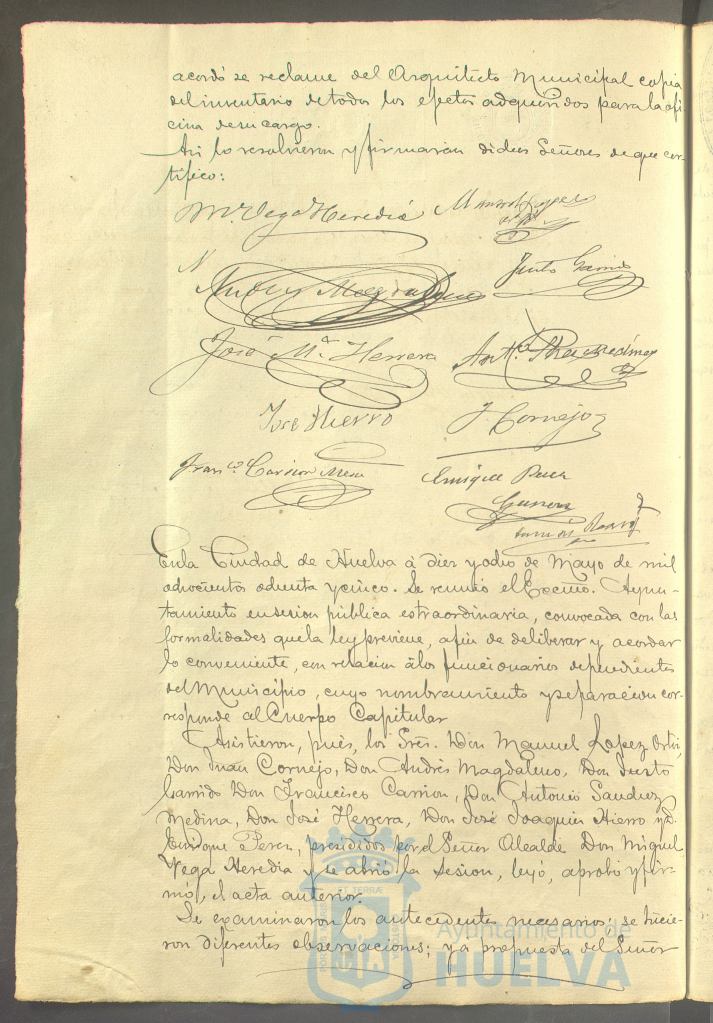 acordó se reclame del Arquitecto Municipal copia
del inventario de todos los efectos adquiridos para la ofi
cina de su cargo.
Asi lo resolvieron y firmaron dichos Señores de que cer
tifico:
M. Vega Heredia
Justo Garrido
Andres Magdaleno
José Mª Herrera
Antº Sanchez Medina
Jose Hierro
J Cornejo
Franco Carrion
Enrique Perez
En la Ciudad de Huelva á diez y ocho de Mayo de mil
ochocientos ochenta y cinco. Se reunió el Excmo. Ayun-
tamiento en sesion pública estraordinaria, convocada con las
formalidades que la ley previene, afin de deliberar y acordar
lo conveniente, con relacion á los funcionarios dependientes
del Municipio, cuyo nombramiento y separacion cor-
responde al Cuerpo Capitular
Asistieron, pues, los Sres. Don Manuel Lopez Ortiz,
Don Juan Cornejo, Don Andrés Magdaleno, Don Justo
Garrido Don Francisco Carrion, Don Antonio Sanchez
Medina, Don José Herrera, Don José Joaquin Hierro y D.
Enrique Perez, presididos por el Señor Alcalde Don Miguel
Vega Heredia y se abrió la sesion, leyó, aprobó y fir-
mó, el acta anterior.
Se examinaron los antecedentes necesarios; se hicie-
ron diferentes observaciones; y a propuesta del Señor
Ayuntamiento de
HUELVA